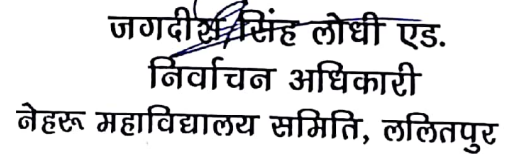 जगदीश सिंह लोधी एड.
निर्वाचन अधिकारी
नेहरू महाविद्यालय समिति, ललितपुर